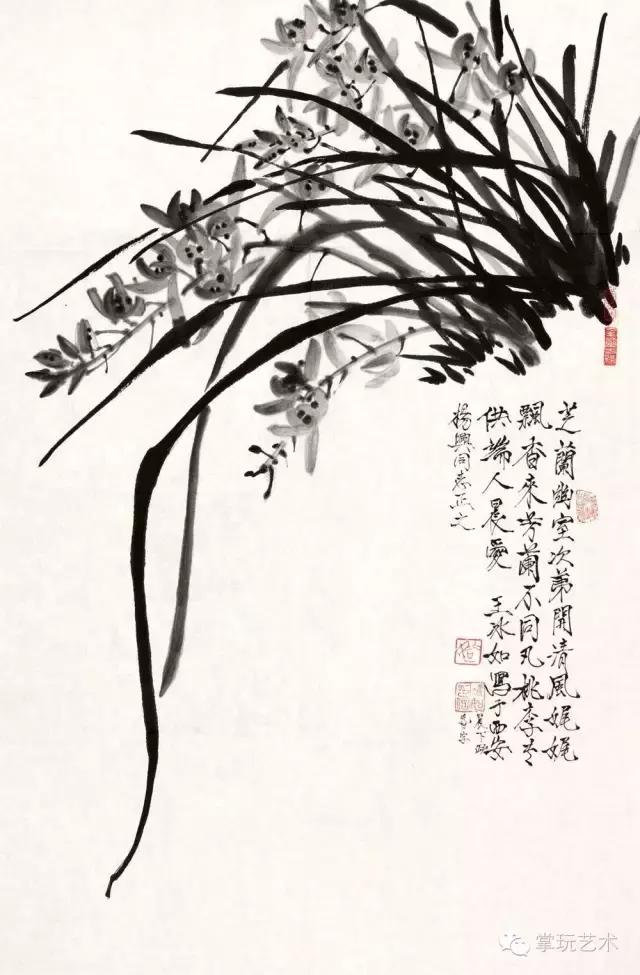 芝蘭幽室次第開清風娓娓
飄香來芳蘭不同凡桃李
供端人晨愛 王冰如寫于西安
楊興同志正之
掌玩艺术